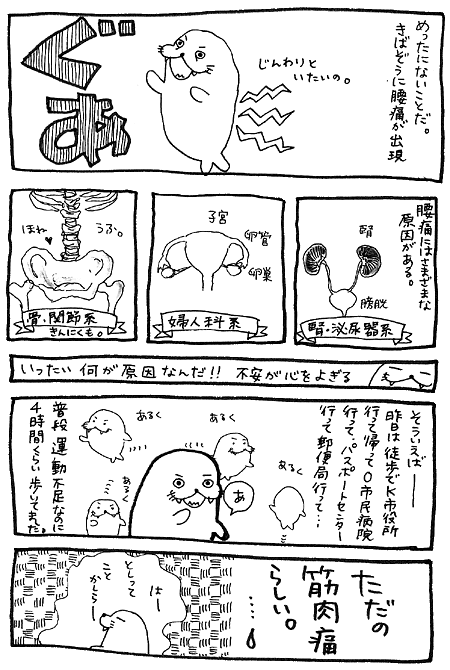 めったにないことだ。
きばぞうに腰痛が出現
じんわりと
いたいの。
ぐあぁ
腰痛にはさまざまな
原因がある。
腎
膀胱
腎・泌尿器系
子宮
卵管
卵巣
婦人科系
ほね
うふ。
骨・関節系
きんにくも。
いったい何が原因なんだ!! 不安が心をよぎる
そういえば――
昨日は徒歩でK市役所
行って帰ってO市民病院
行って、パスポートセンター
行って郵便局行って…
あ
あるく
あるく
あるく
あるく
普段運動不足なのに
4時間くらい歩いてました。
ただの
筋肉痛
らしい。
……
はー
としって
こと
かしらー